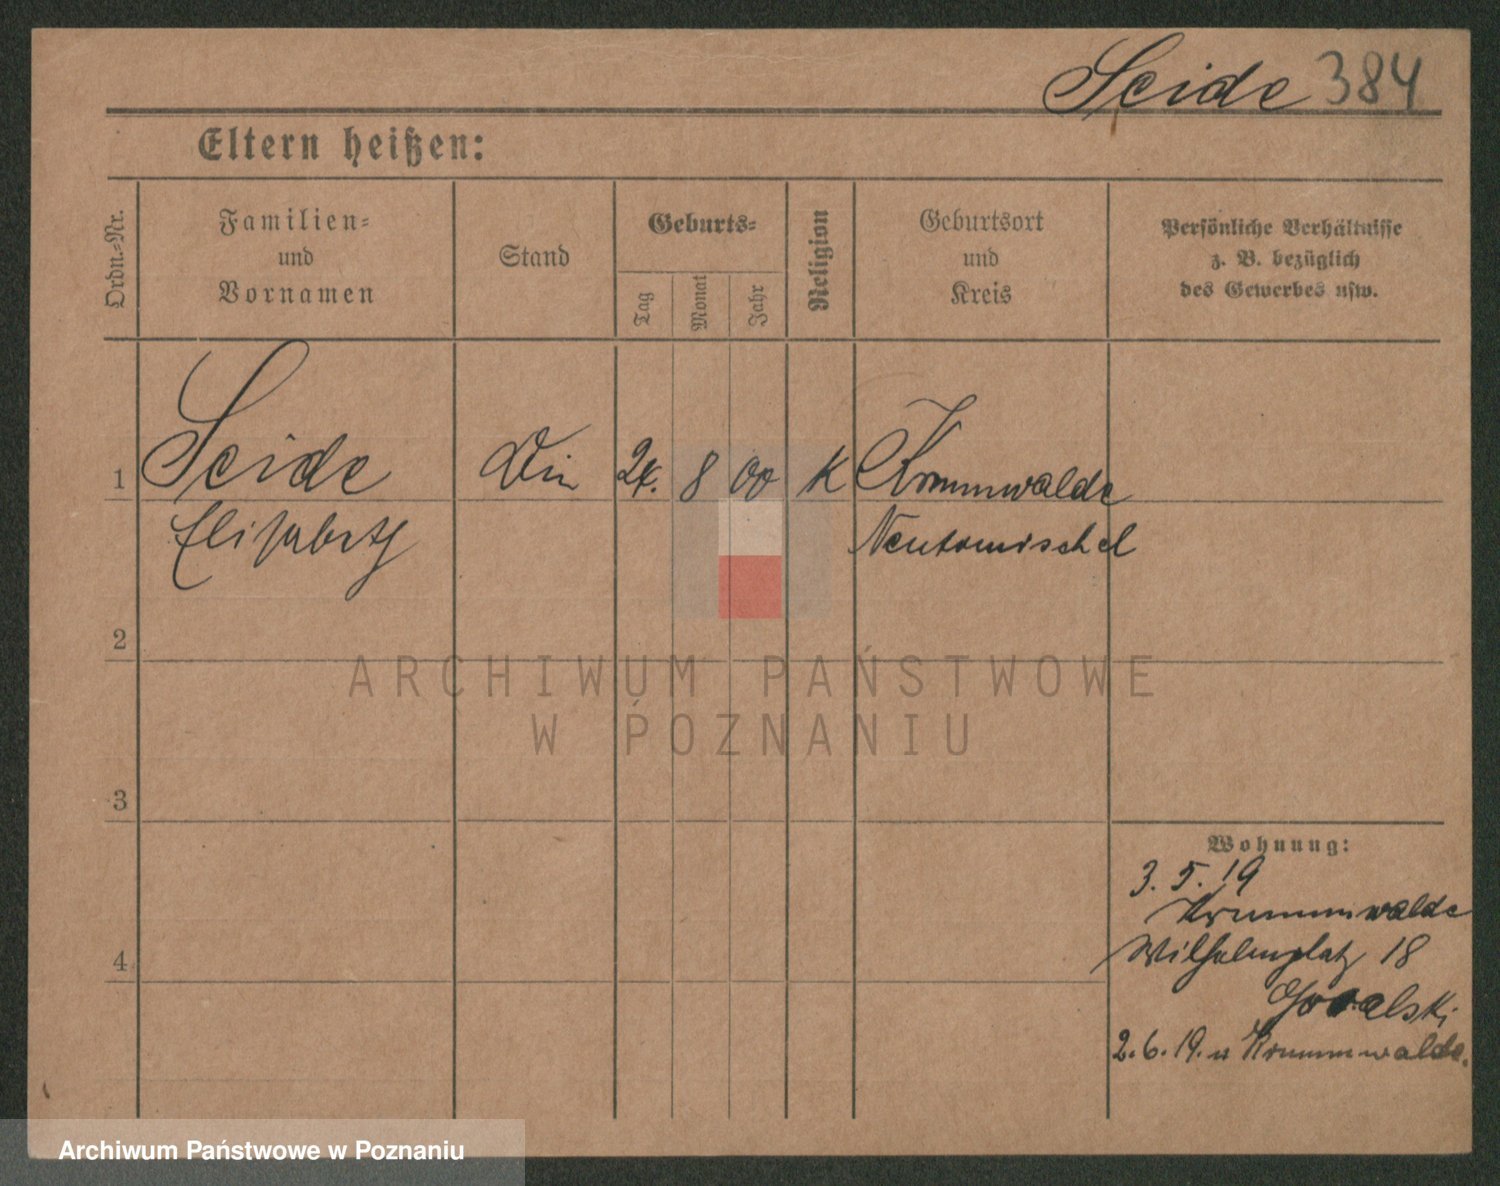 Seide 384
Eltern heißen:
Ordn.-Nr.
Familien-
und
Vornamen
Stand
Geburts-
Tag
Monat
Jahr
Religion
Geburtsort
und
Kreis
Persönliche Verhältnisse
z. B. bezüglich
des Gewerbes usw.
1 Seide Die 24. 8 00 K Krummwalde
Elisabeth Neutomischel
2
3
4
Wohnung:
3. 5. 19
Krummwalde
Wilhelmplatz 18
Goralski
2. 6. 19. n Krummwalde.
ARCHIWUM PAŃSTWOWE
W POZNANIU
Archiwum Państwowe w Poznaniu